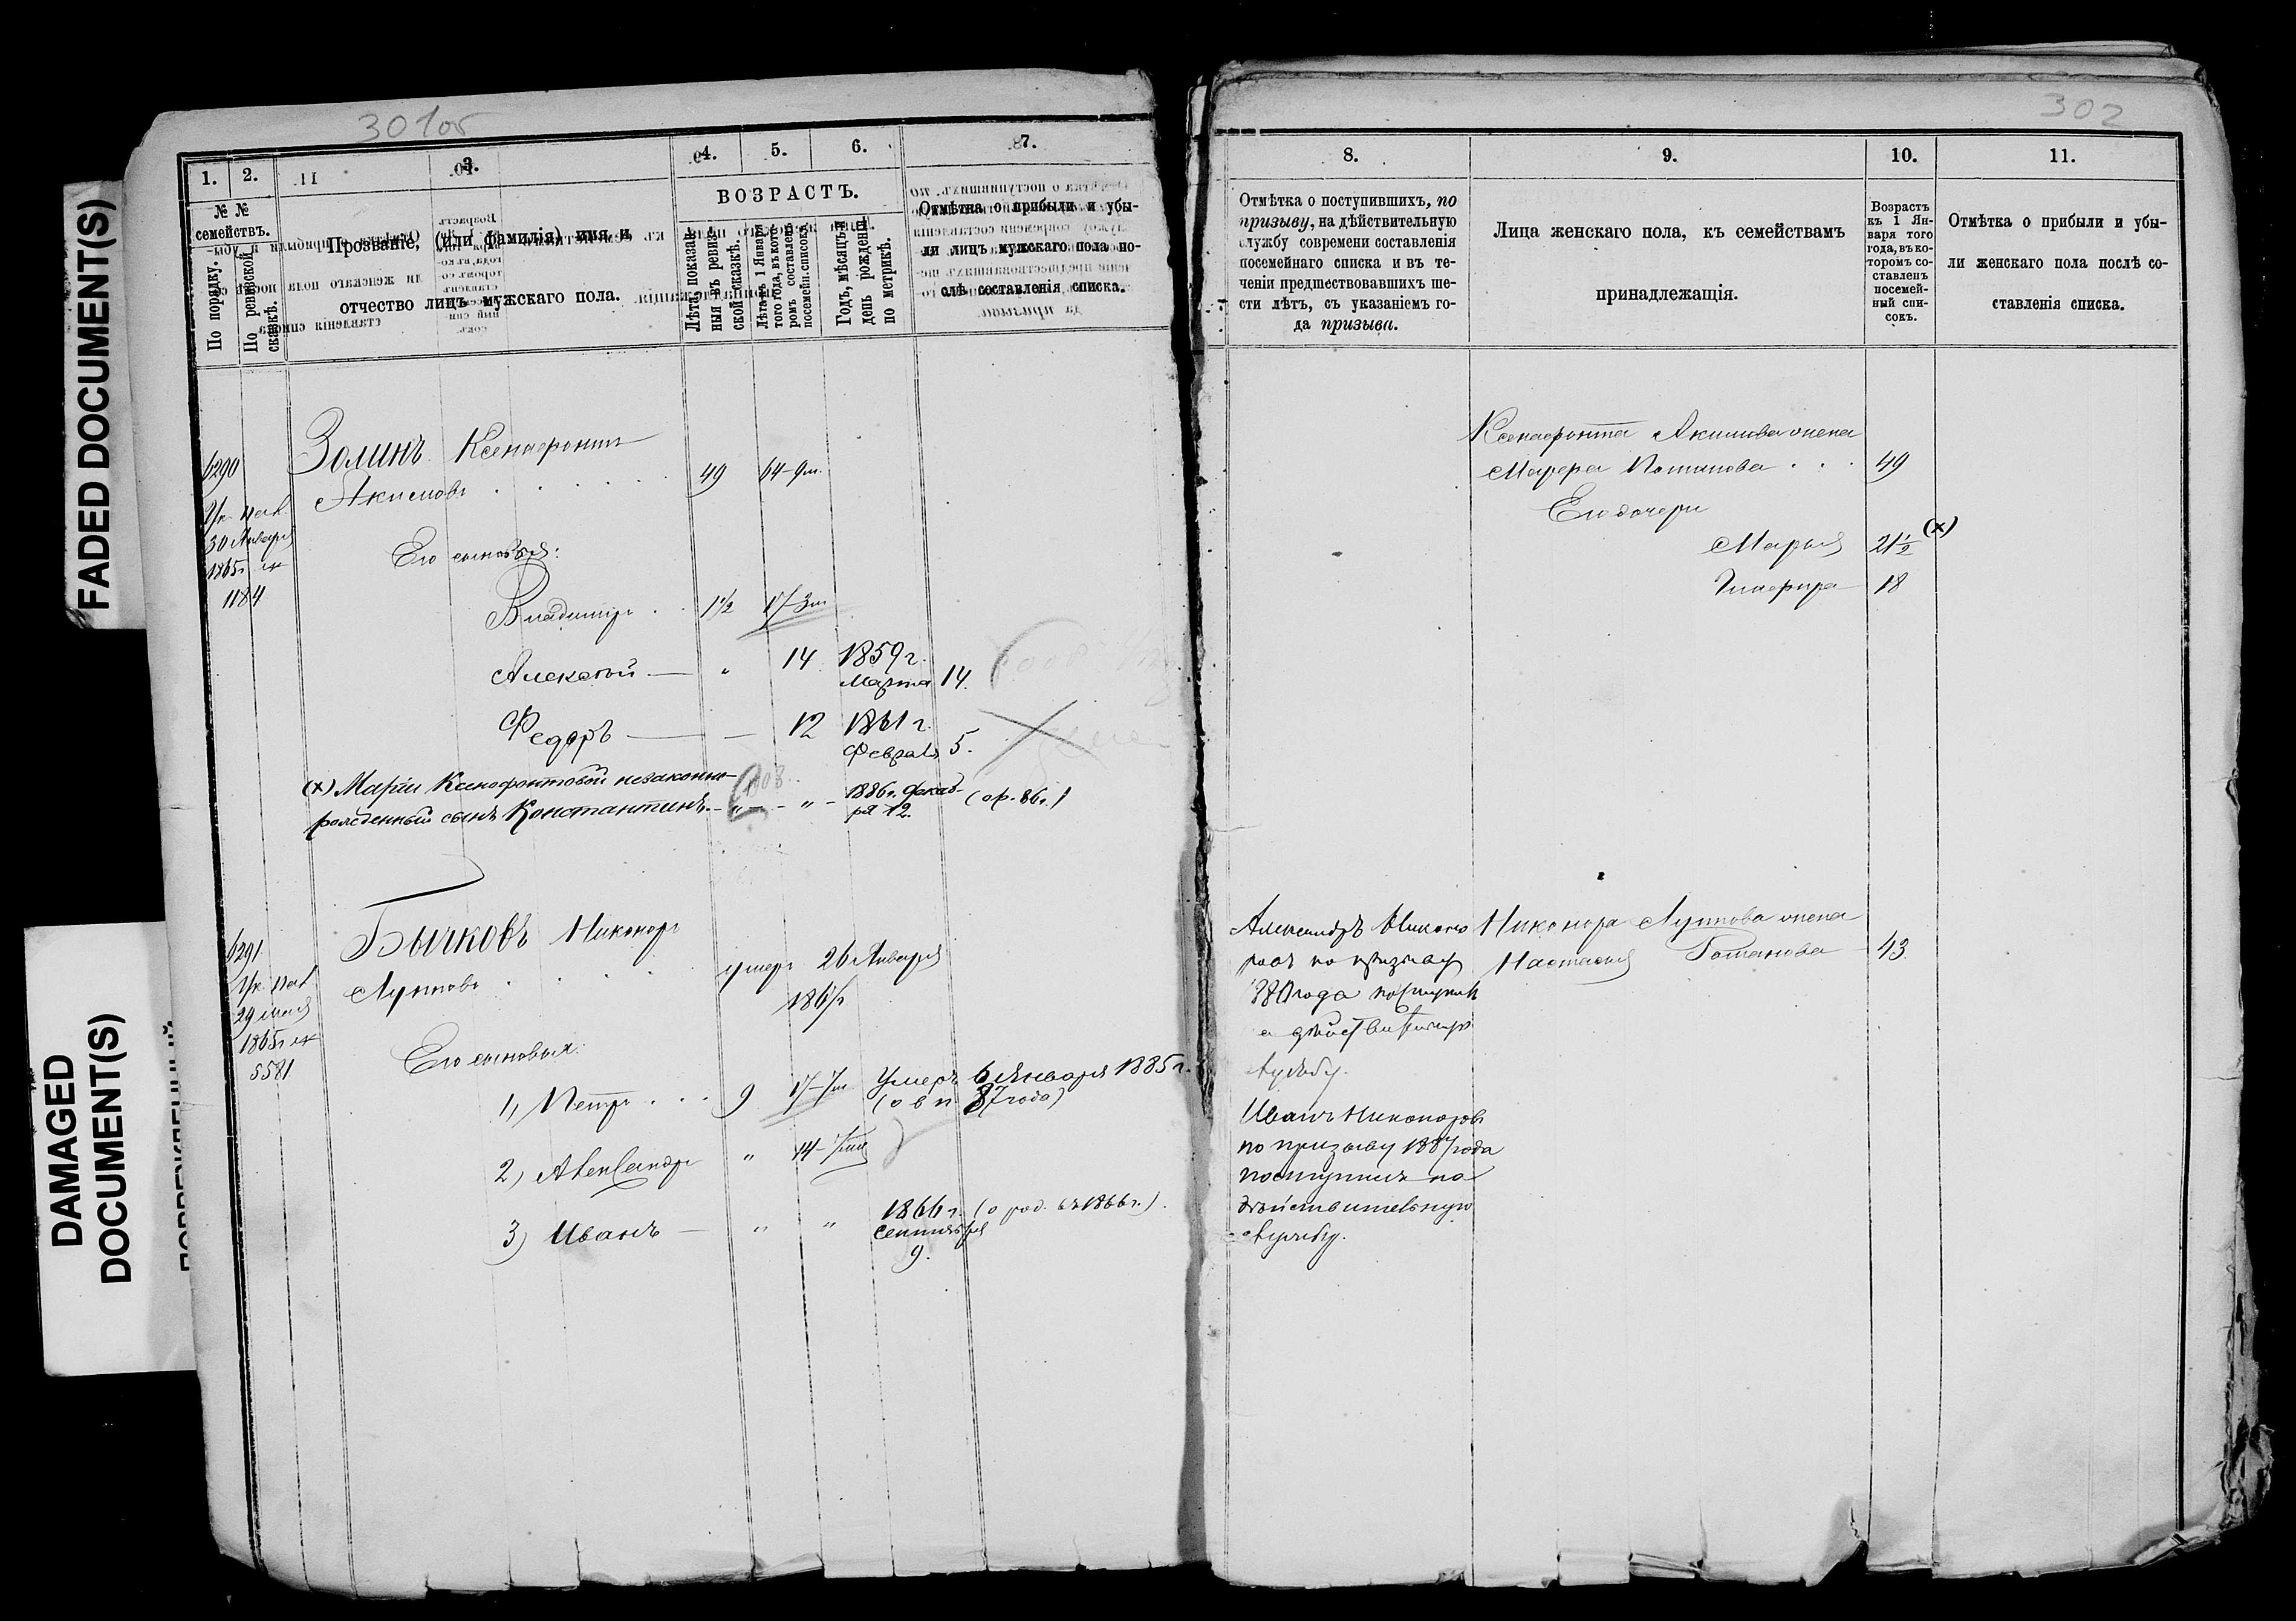 FADED DOCUMENT(S)
DAMAGED
DOCUMENT(S)
301об
1. 2. 3. 4. 5. 6. 7.
№ №
семействъ.
По порядку.
По ревизской
сказкѣ.
Прозваніе, (или фамилія) имя и
отчество лицъ мужскаго пола.
ВОЗРАСТЪ.
Лѣта, показан-
ныя въ ревиз-
ской сказкѣ.
Лѣта къ 1 Января
того года, въ кото-
ромъ составленъ
посемейн. списокъ.
Годъ, мѣсяцъ и
день рожденія
по метрикѣ.
Отмѣтка о прибыли и убы-
ли лицъ мужскаго пола по-
слѣ составленія списка.
6290
30 Января
1865г
1184
Золинъ Ксенофонтъ
Акимовъ . . . . . . 49 64-9м.
Его сыновья:
Владиміръ . . 1½ 17-3м
Алексѣй — " 14 1859 г.
Марта 14.
Федоръ — — 12 1861 г.
Февраля 5.
(х) Маріи Ксенофонтовой незаконно-
рожденный сынъ Константинъ. - " - " - 1886 г. декаб-
ря 12. (ар. 86 г.)
6291
29 мая
1865г
5581
Бычковъ Никаноръ
Лупповъ . . . . умеръ 26 Января
Его сыновья:
1, Петръ . . . 9 17-7м Умеръ 6 Января 1885 г.
87 года)
2) Александръ " 14-
3) Иванъ — " " 1866 г. (о род. въ 1866 г.).
Сентября
9.
302
8. 9. 10. 11.
Отмѣтка о поступившихъ, по
призыву, на дѣйствительную
службу современи составленія
посемейнаго списка и въ те-
ченіи предшествовавшихъ ше-
сти лѣтъ, съ указаніемъ го-
да призыва.
Лица женскаго пола, къ семействамъ
принадлежащія.
Возрастъ
къ 1 Ян-
варя того
года, въ ко-
торомъ со-
ставленъ
посемей-
ный спи-
сокъ.
Отмѣтка о прибыли и убы-
ли женскаго пола послѣ со-
ставленія списка.
Ксенофонта Акимова жена
Марфа Потапова . . . 49
Его дочери
Марья 21½ (х)
Глафира 18
Никонора Луппова жена
Настасья Потапова 43.
Александръ Никоно
ровъ по призыву
года поступилъ
службу.
Иванъ Никоноровъ
по призыву 1887 года
поступилъ на
дѣйствительную
службу.